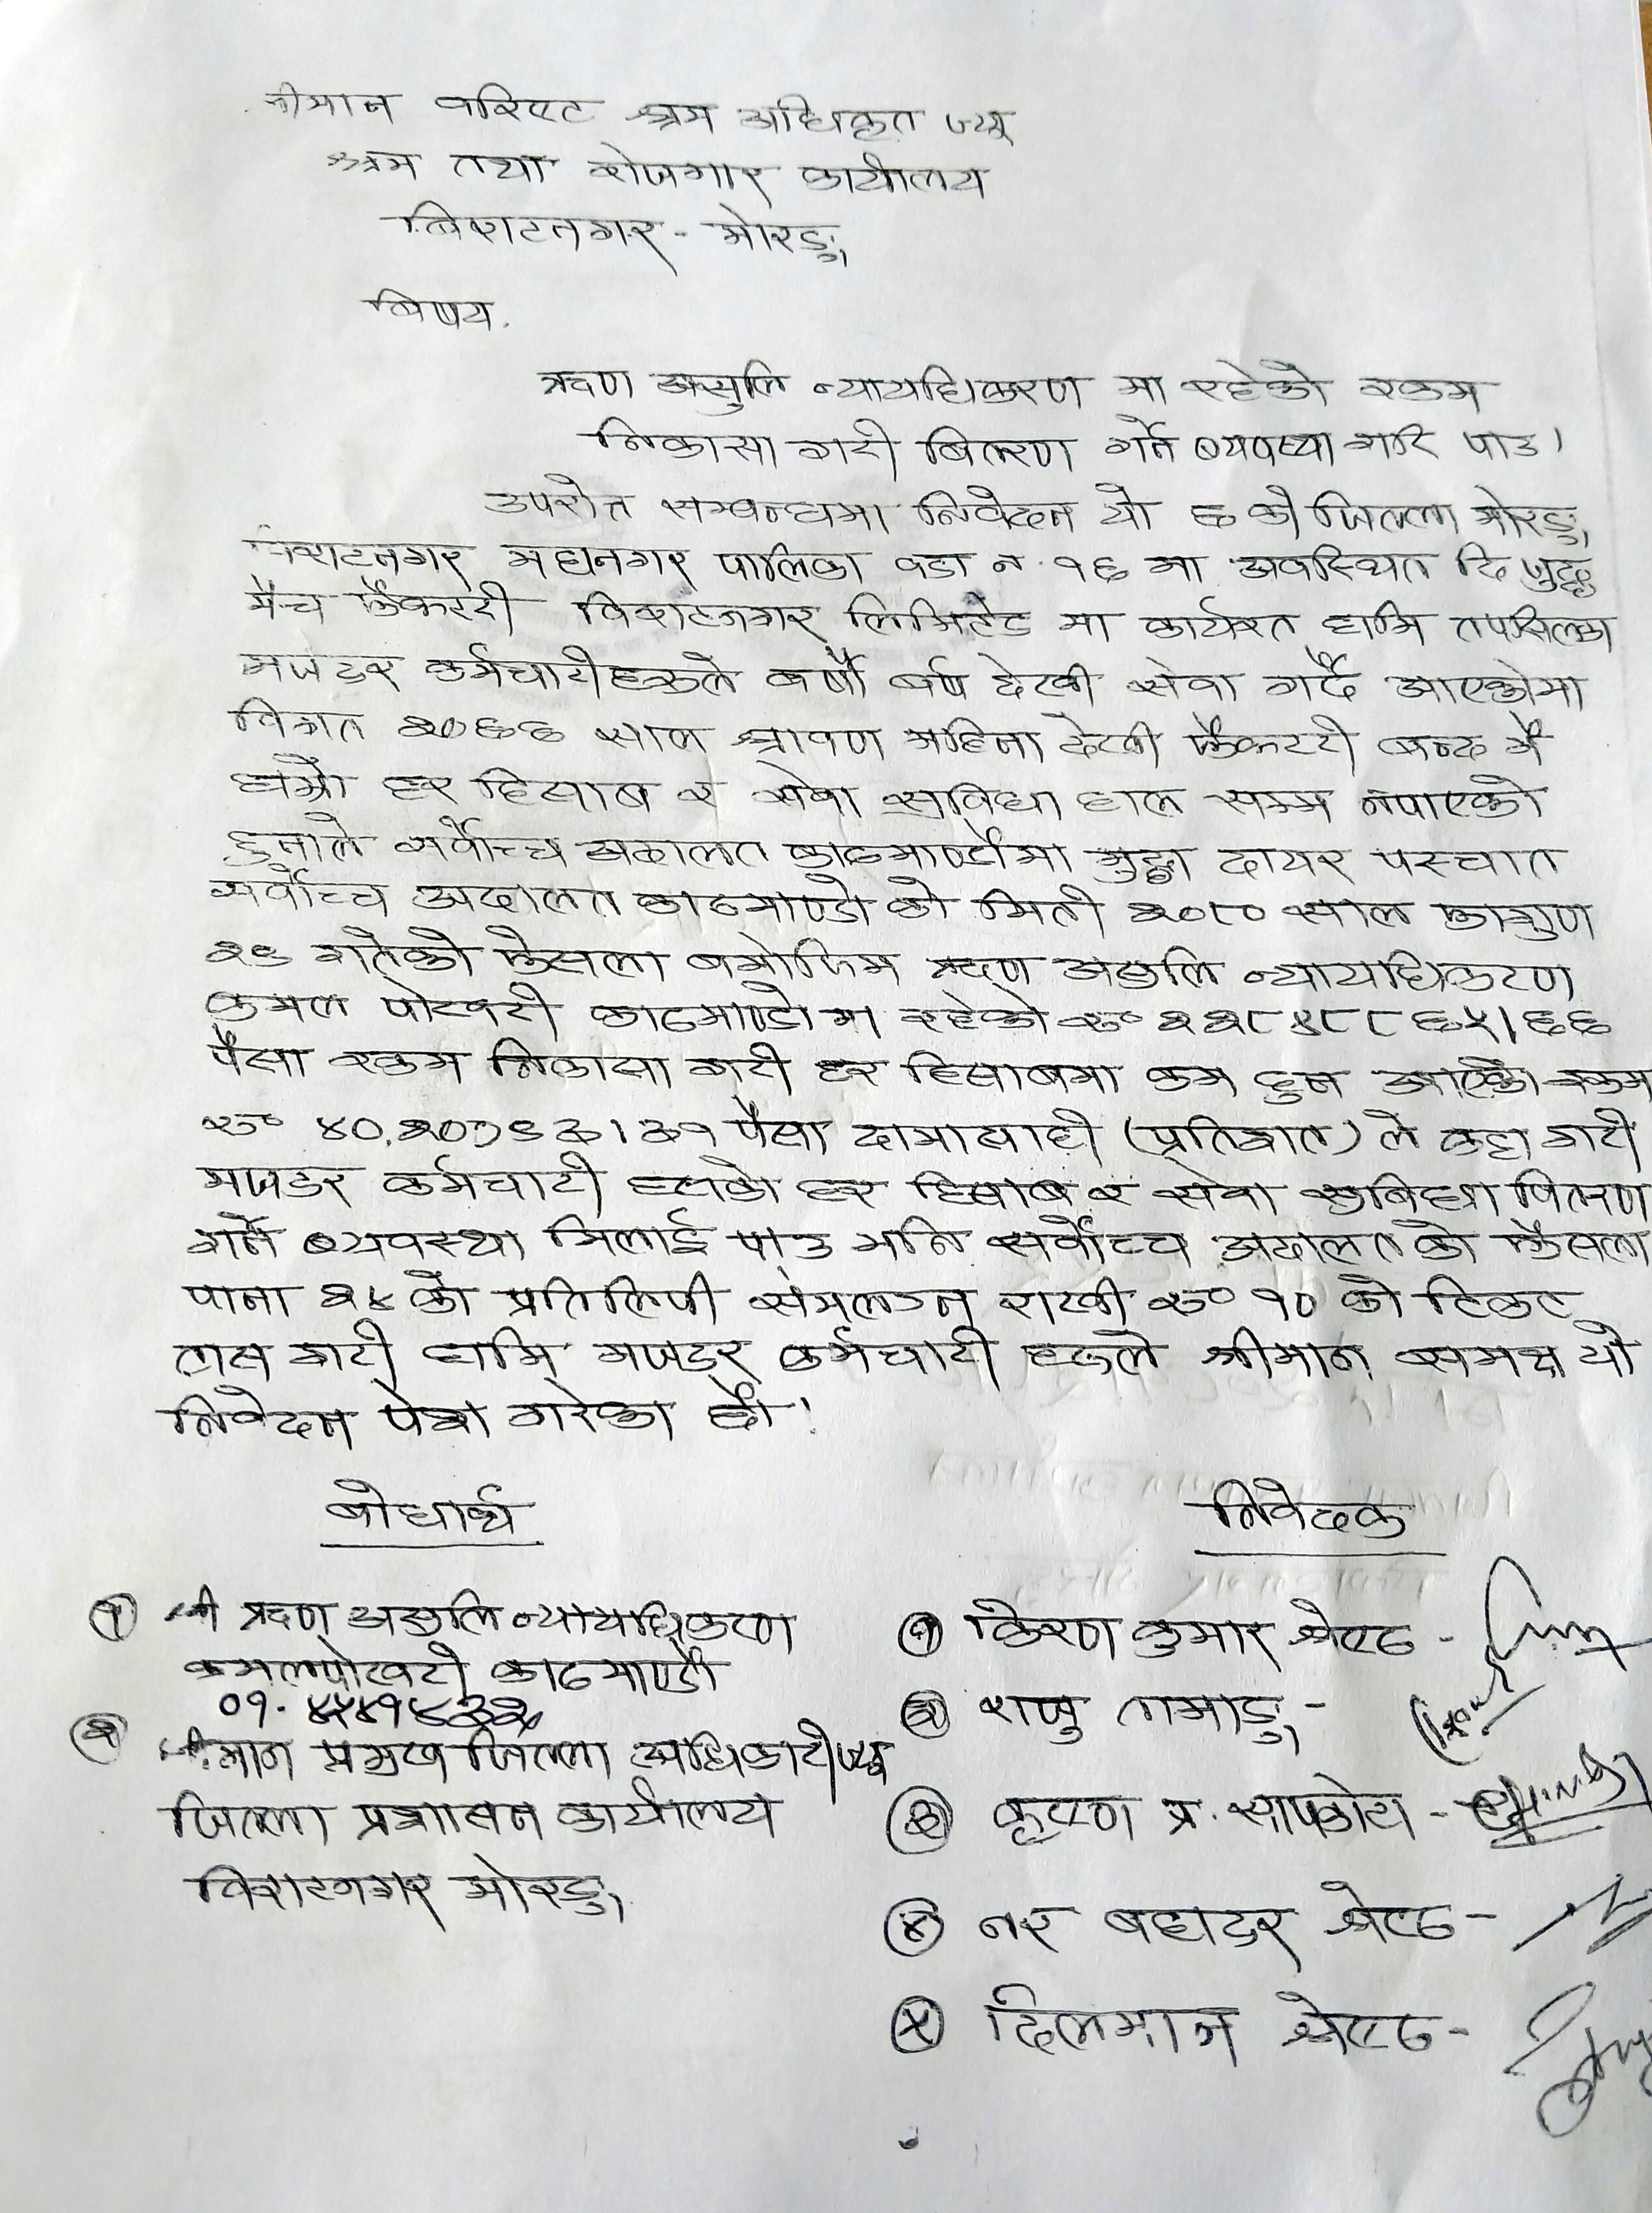 श्रीमान वरिष्ट श्रम अधिकृत ज्यू
श्रम तथा रोजगार कार्यालय
बिराटनगर - मोरङ्ग,
बिषय.
ऋण असुलि न्यायधिकरण मा रहेको रकम
निकासा गरी बितरण गर्ने ब्यवस्था गरि पाउ।
उपरोत्त सम्वन्धमा निवेदन यो छ को जिल्ला मोरङ्ग,
बिराटनगर महानगर पालिका वडा न. १६ मा अवस्थित दि जुद्ध
मैच फैक्टरी विराटनगर लिमिटेड मा कार्यरत हामि तपसिलका
मजदुर कर्मचारीहरुले बर्षौ बर्ष देखी सेवा गर्दै आएकोमा
विगत २०६६ साल श्रावण महिना देखी फैकटरी बन्द भै
हाम्रो हर हिसाब र सेवा सुविधा हाल सम्म नपाएको
हुनाले सर्वोच्च अदालत काठमाण्डौमा मुद्धा दायर पस्चात
सर्वोच्च अदालत काठमाण्डो को मिती २०८० साल फागुण
२९ गतेको फैसला बमोजिम ऋण असुलि न्यायधिकरण
कमल पोखरी काठमाण्डो मा रहेको रु० २२८४८८६५।६६
पैसा रकम निकासा गरी हर हिसाबमा कम हुन आएको रकम
रु० ४०,२०७९३।३१ पैसा दामासाही (प्रतिशत) ले कट्टा गरी
मजदुर कर्मचारी हरुको हर हिसाब र सेवा सुबिधा वितरण
गर्ने ब्यवस्था मिलाई पाउ भनि सर्वोच्च अदालतको फैसला
पाना २४ को प्रतिलिपी संगलग्न राखी रु० १० को टिकट
टास गरी हामि मजदुर कर्मचारी हरुले श्रीमान समक्ष यो
निवेदन पेश गरेका छौ।
बोधार्थ
निवेदक
१ श्री ऋण असुलि न्यायधिकरण
कमलपोखरी काठमाण्डौ
२ श्रीमान प्रमुख जिल्ला अधिकारीज्यू
जिल्ला प्रशासन कार्यालय
विराटनगर मोरङ्ग,
१ किरण कुमार श्रेष्ठ -
२ राजु तामाङ्ग, -
३ कृष्ण प्र. सापकोटा -
४ नर बहादुर श्रेष्ठ -
५ दिलमान श्रेष्ठ -